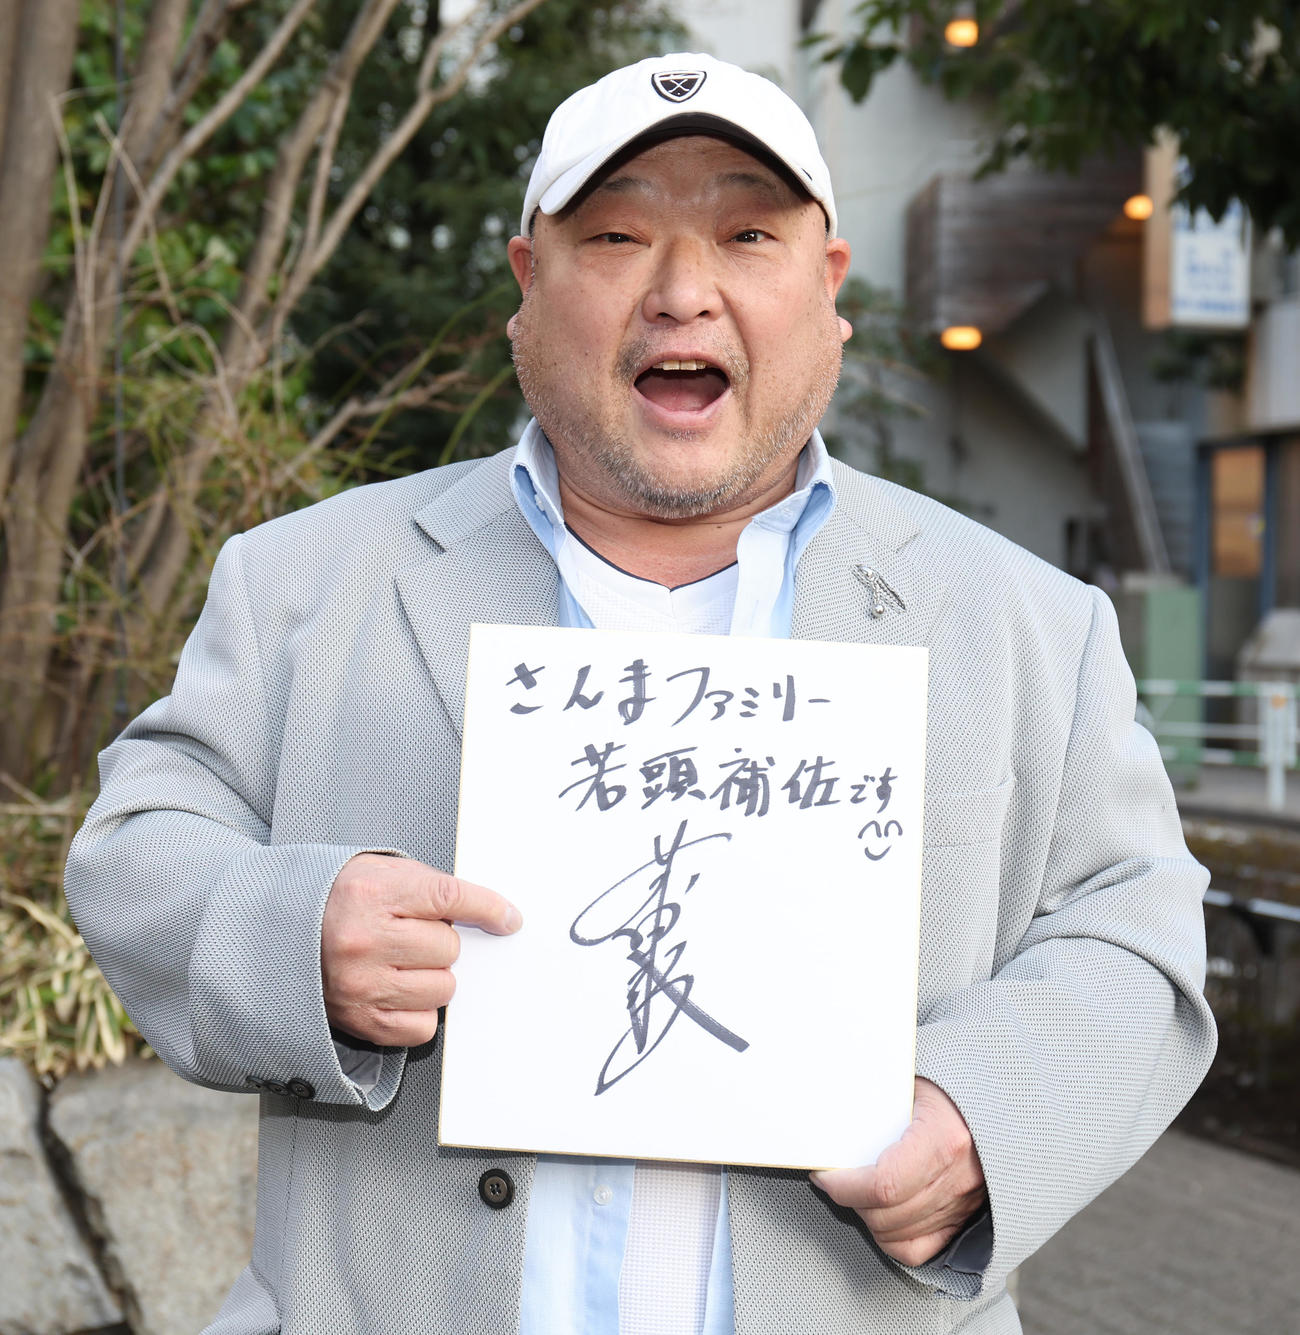 さんまファミリー
若頭補佐です